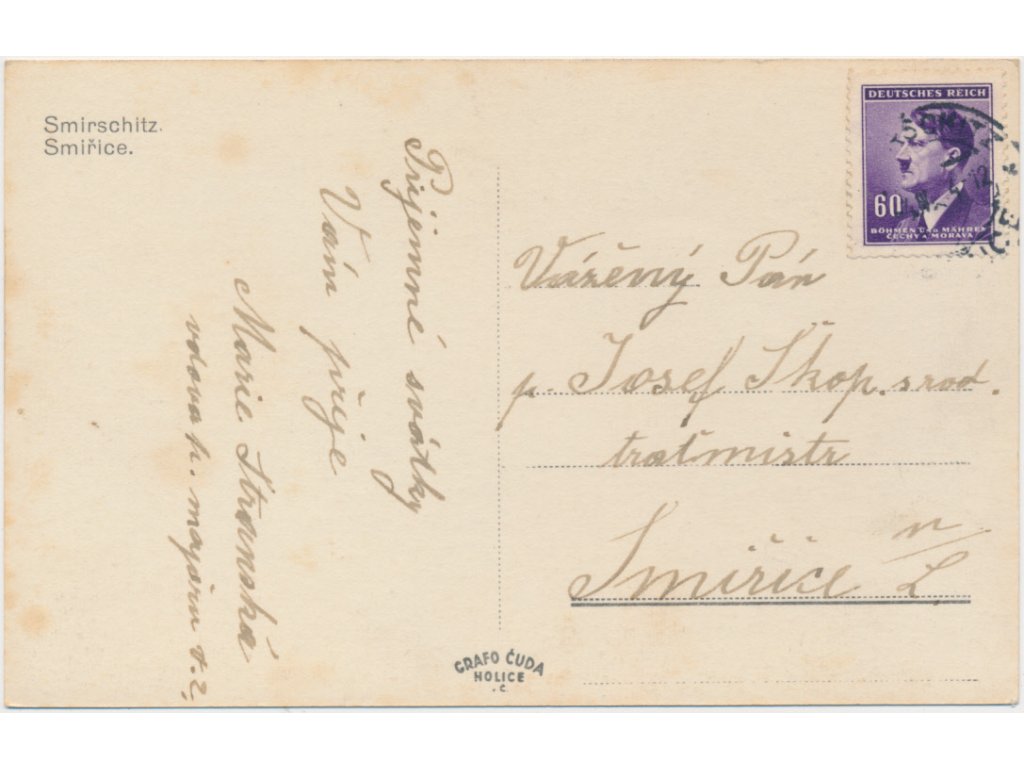 Smirschitz.
Smiřice.
Příjemné svátky
Vám přeje
Marie Stránská
vdova p. majoru v. z.
DEUTSCHES REICH
60
BÖHMEN UND MÄHREN
ČECHY A MORAVA
Vážený Pán
p. Josef Škop. s rod.
traťmistr
Smiřice n/L.
GRAFO ČUDA
HOLICE